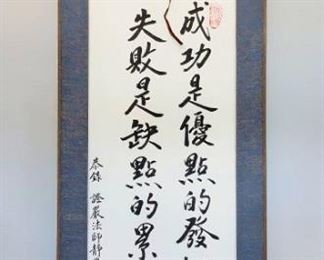 成功是優點的發
失敗是缺點的累
恭錄 證嚴法師靜